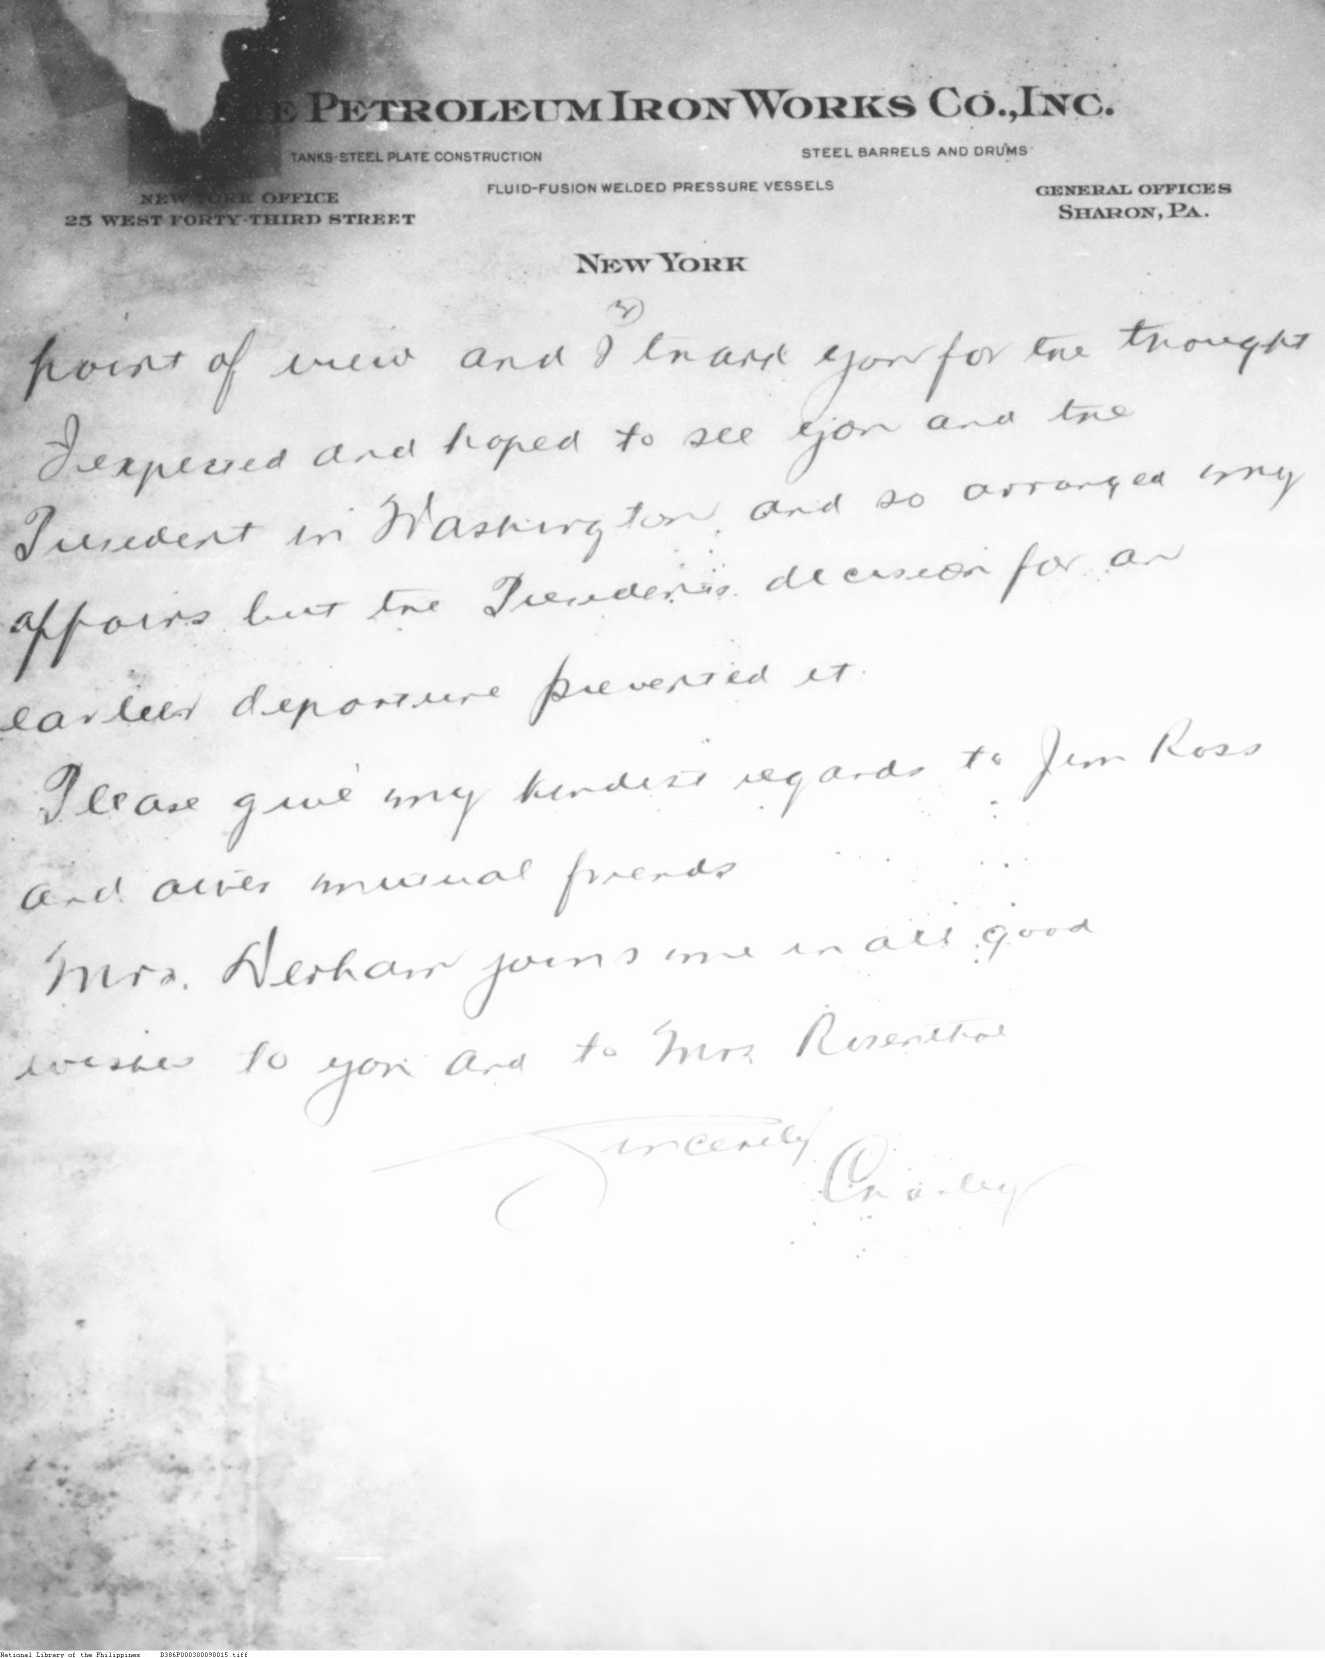 THE PETROLEUM IRON WORKS CO., INC.
TANKS-STEEL PLATE CONSTRUCTION
STEEL BARRELS AND DRUMS
FLUID-FUSION WELDED PRESSURE VESSELS
NEW YORK OFFICE
25 WEST FORTY-THIRD STREET
GENERAL OFFICES
SHARON, PA.
NEW YORK
point of view and I thank you for the thought
I expected and hoped to see you and the
President in Washington, and so arranged my
affairs but the President's decision for an
earlier departure prevented it.
Please give my kindest regards to Jim Ross
and other mutual friends
Mrs. Derham joins me in all good
wishes to you and to Mrs Rosenthal
Sincerely
Charley
National Library of the Philippines B386P000300098015.tiff